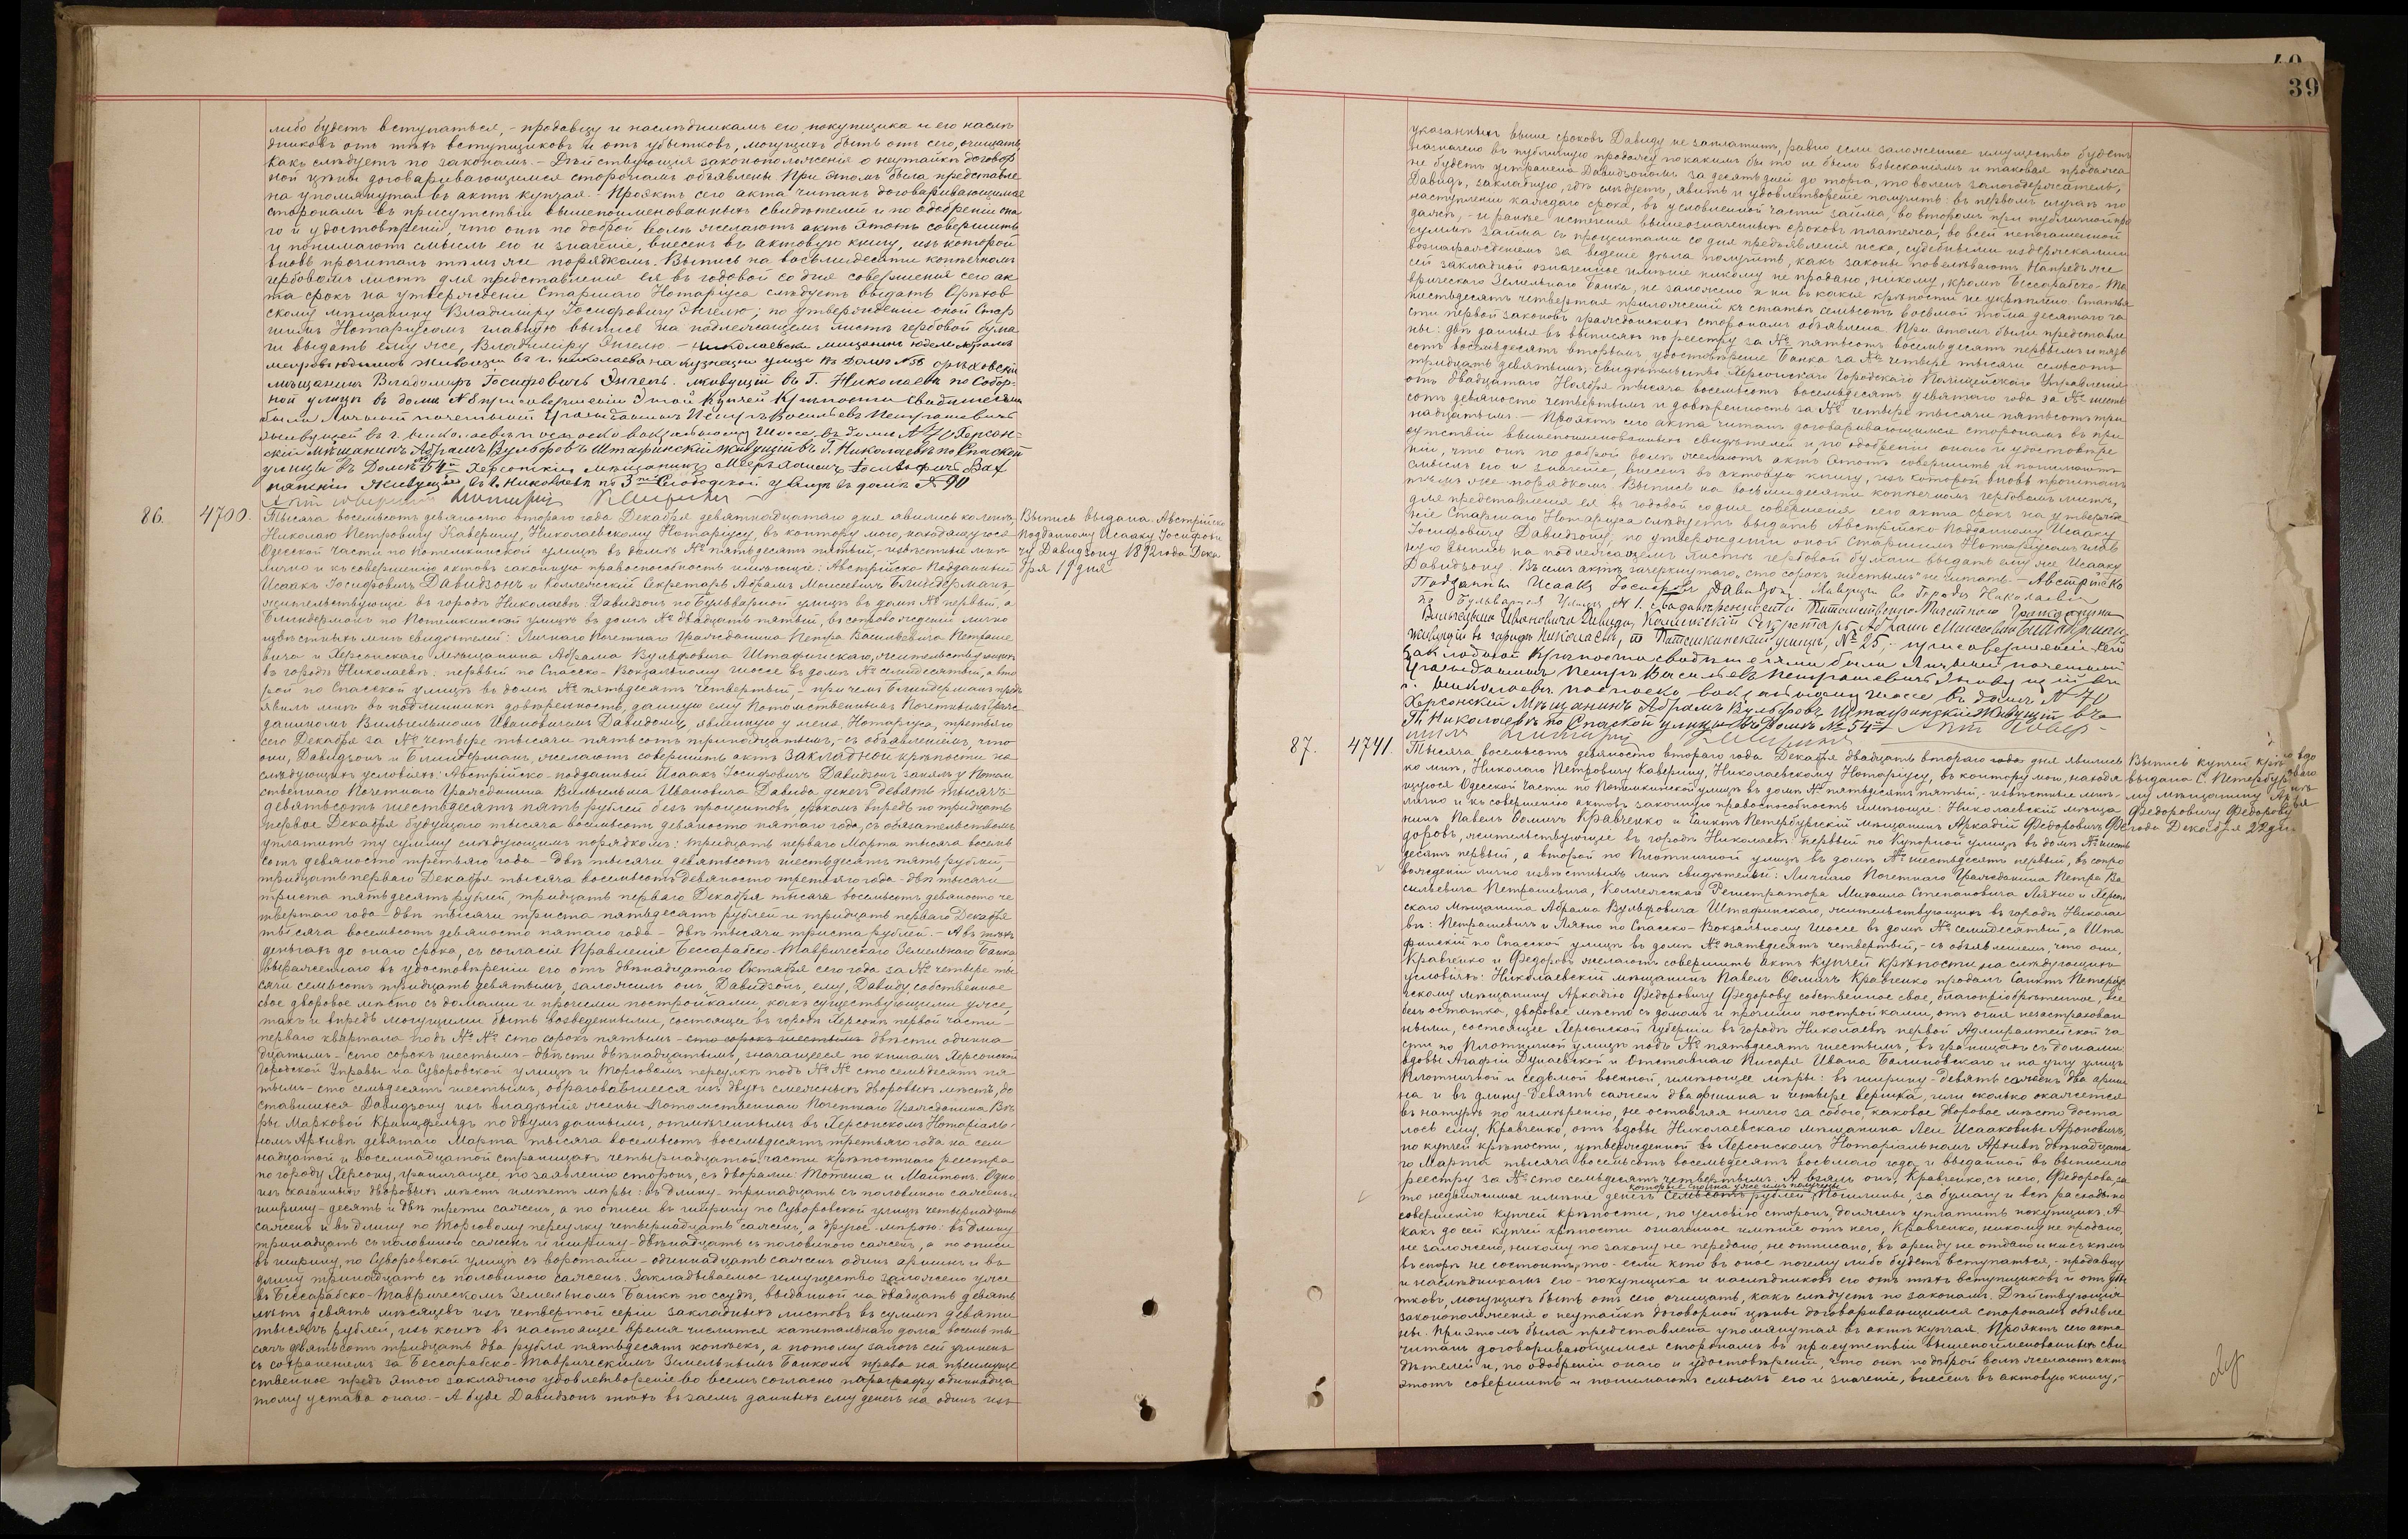 либо будетъ вступаться, - продавцу и наслѣдникамъ его, покупщика и его наслѣ
дниковъ отъ тѣхъ вступщиковъ и отъ убытковъ, могущихъ быть отъ сего, очищать,
какъ слѣдуетъ по законамъ. - Дѣйствующія законоположенія о неутайкѣ договор
ной цѣны договаривающимся сторонамъ объявлены. При этомъ была представле
на упомянутая въ актѣ купчая. - Проэктъ сего акта читанъ договаривающимся
сторонамъ въ присутствіи вышепоименованныхъ свидѣтелей и по одобреніи она
го и удостовѣреніи, что они по доброй волѣ желаютъ актъ этотъ совершить
и понимаютъ смыслъ его и значеніе, внесенъ въ актовую книгу, изъ которой
вновь прочитанъ тѣмъ же порядкомъ. Выпись на восьмидесяти копѣечномъ
гербовомъ листѣ для представленія ея въ годовой со дня совершенія сего ак
та срокъ на утвержденіе Старшаго Нотаріуса слѣдуетъ выдать Орѣхов
скому мѣщанину Владиміру Іосифовичу Энгелю; по утвержденіи оной Стар
шимъ Нотаріусомъ главную выпись на подлежащемъ листѣ гербовой бума
ги выдать ему же, Владиміру Энгелю. - Николаевскій мещанинъ
живущій въ г. Николаевѣ на Кузнецкой улице въ домѣ № 36 орѣховскій
мѣщанинъ Владимиръ Іосифовичъ Энгель. живущій въ Г. Николаевѣ по Собор-
ной улицы въ домѣ № 8 при совершеніи этой купчей крѣпости свидѣтелями
были Личный почетный Гражданинъ Петръ Васильевъ Петрашевичъ
живущій въ г. Николаевѣ по спаско вокзальному шоссе въ домѣ № 70 Херсон-
скій мѣщанинъ Абрамъ Вульфовъ Штафинскій живущій въ Г. Николаевѣ по Спаской
улицы въ Домѣ № 54й Херсонскій мѣщанинъ
живущій въ г. Николаевѣ по 3й Слободской улицѣ въ домѣ № 90
Нотаріусъ
86. 4700. Тысяча восемьсотъ девяносто втораго года Декабря девятнадцатаго дня явились ко мнѣ,
Николаю Петровичу Каверину, Николаевскому Нотаріусу, въ контору мою, находящуюся
Одесской части по Потемкинской улицѣ въ домѣ № пятьдесятъ пятый, - извѣстные мнѣ
лично и къ совершенію актовъ законную правоспособность имѣющіе: Австрійско-Подданный
Исаакъ Іосифовичъ Давидзонъ и Коллежскій Секретарь Абрамъ Моисеевичъ Блиндерманъ,
жительствующіе въ городѣ Николаевѣ: Давидзонъ по Бульварной улицѣ въ домѣ № первый, а
Блиндерманъ по Потемкинской улицѣ въ домѣ № двадцать пятый, въ сопровожденіи лично
извѣстныхъ мнѣ свидѣтелей: Личнаго Почетнаго Гражданина Петра Васильевича Петраше
вича и Херсонскаго Мѣщанина Абрама Вульфовича Штафинскаго, жительствующихъ
въ городѣ Николаевѣ: первый по Спасско-Вокзальному шоссе въ домѣ № семидесятый, а вто
рой по Спасской улицѣ въ домѣ № пятьдесятъ четвертый, - при чемъ Блиндерманъ предъ
явилъ мнѣ въ подлинникѣ довѣренность, данную ему Потомственнымъ Почетнымъ граж
даниномъ Вильгельмомъ Ивановичемъ Давидомъ, явленную у меня, Нотаріуса, третьяго
сего Декабря за № четыре тысячи пятьсотъ тринадцатымъ, - съ объявленіемъ, что
они, Давидзонъ и Блиндерманъ, желаютъ совершить актъ закладной крѣпости на
слѣдующихъ условіяхъ: Австрійско-подданный Исаакъ Іосифовичъ Давидзонъ занялъ у Потом
ственнаго Почетнаго Гражданина Вильгельма Ивановича Давида денегъ девять тысячъ
девятьсотъ шестьдесятъ пять рублей безъ процентовъ, срокомъ впредь по тридцать
первое Декабря будущаго тысяча восемьсотъ девяносто пятаго года, съ обязательствомъ
уплатить ту сумму слѣдующимъ порядкомъ: тридцать перваго Марта тысяча восемь
сотъ девяносто третьяго года - двѣ тысячи девятьсотъ шестьдесятъ пять рублей,
тридцать перваго Декабря тысяча восемьсотъ девяносто третьяго года - двѣ тысячи
триста пятьдесятъ рублей, тридцать перваго Декабря тысяча восемьсотъ девяносто че
твертаго года - двѣ тысячи триста пятьдесятъ рублей и тридцать перваго Декабря
тысяча восемьсотъ девяносто пятаго года - двѣ тысячи триста рублей. - А въ тѣхъ
деньгахъ до онаго срока, съ согласія Правленія Бессарабско-Таврическаго Земельнаго Банка,
выраженнаго въ удостовѣреніи его отъ двѣнадцатаго Октября сего года за № четыре ты
сячи семьсотъ тридцать девятымъ, заложилъ онъ, Давидзонъ, ему, Давиду, собственное
свое дворовое мѣсто съ домами и прочими постройками, какъ существующими уже,
такъ и впредь могущими быть возведенными, состоящее въ городѣ Херсонѣ первой части
перваго квартала подъ №№ сто сорокъ пятымъ - сто сорокъ шестымъ двѣсти одинна
дцатымъ - сто сорокъ шестымъ - двѣсти двѣнадцатымъ, значащееся по книгамъ Херсонской
Городской Управы на Суворовской улицѣ и Торговомъ переулкѣ подъ №№ сто семьдесятъ пя
тымъ - сто семьдесятъ шестымъ, образовавшееся изъ двухъ смежныхъ дворовыхъ мѣстъ, до
ставшихся Давидзону изъ владѣнія жены Потомственнаго Почетнаго Гражданина Вѣ
ры Марковой Криндфельдъ по двумъ даннымъ, отмѣченнымъ въ Херсонскомъ Нотаріаль-
номъ Архивѣ девятаго Марта тысяча восемьсотъ восемьдесятъ третьяго года на сем
надцатой и восемнадцатой страницахъ четырнадцатой части крѣпостнаго реестра
по городу Херсону, граничащее, по заявленію сторонъ, съ дворами: Тотеша и Майтопъ. Одно
изъ сказанныхъ дворовыхъ мѣстъ имѣетъ мѣры: въ длину - тринадцать съ половиною саженъ и
ширину - десять и двѣ трети саженъ, а по описи въ ширину по Суворовской улицѣ четырнадцать
саженъ и въ длину по Торговому переулку четырнадцать саженъ, а другое - мѣрою: въ длину
тринадцать съ половиною саженъ и ширину - двѣнадцать съ половиною саженъ, а по описи
въ ширину, по Суворовской улицѣ съ воротами - одиннадцать саженъ одинъ аршинъ и въ
длину тринадцать съ половиною саженъ. Закладываемое имущество заложено уже
въ Бессарабско-Таврическомъ Земельномъ Банкѣ по ссудѣ, выданной на двадцать девять
лѣтъ девять мѣсяцевъ изъ четвертой серіи закладныхъ листовъ въ суммѣ девяти
тысячъ рублей, изъ коихъ въ настоящее время числится капитальнаго долга восемь ты
сячъ девятьсотъ тридцать два рубля пятьдесятъ копѣекъ, а потому залогъ сей учиненъ
съ сохраненіемъ за Бессарабско-Таврическимъ Земельнымъ Банкомъ права на преимуще
ственное предъ этою закладною удовлетвореніе во всемъ согласно параграфу одиннадца
тому устава онаго. - А буде Давидзонъ тѣхъ въ заемъ данныхъ ему денегъ на одинъ изъ
Выпись выдана Австрійско
Подданному Исааку Іосифови
чу Давидзону 1892 года Дека
бря 19 дня
39
указанныхъ выше сроковъ Давиду не заплатитъ, равно если заложенное имущество будетъ
назначено въ публичную продажу по какимъ бы то ни было взысканіямъ и таковая продажа
не будетъ устранена Давидзономъ за десять дней до торга, то воленъ залогодержатель,
Давидъ, закладную, гдѣ слѣдуетъ, явить и удовлетвореніе получить: въ первомъ случаѣ по
наступленіи каждаго срока, въ условленной части займа, во второмъ при публичной про
дажѣ, - и ранѣе истеченія вышеозначенныхъ сроковъ платежа, во всей непогашенной
суммѣ займа съ процентами со дня предъявленія иска, судебными издержками и
вознагражденіемъ за веденіе дѣла получить, какъ законы повелѣваютъ. Напредь же
сей закладной означенное имѣніе никому не продано, никому, кромѣ Бессарабско-Та
врическаго Земельнаго Банка, не заложено и ни въ какія крѣпости не укрѣплено. Статья
шестьдесятъ четвертая приложенія къ статьѣ семьсотъ восьмой тома десятаго ча
сти первой законовъ гражданскихъ сторонамъ объявлена. При этомъ были представле
ны: двѣ данныя въ выписяхъ по реестру за № пятьсотъ восемьдесятъ первымъ и пять
сотъ восемьдесятъ вторымъ, удостовѣреніе Банка за № четыре тысячи семьсотъ
тридцать девятымъ, свидѣтельство Херсонскаго Городскаго Полицейскаго Управленія
отъ двадцатаго Ноября тысяча восемьсотъ восемьдесятъ девятаго года за № шесть
сотъ девяносто четвертымъ и довѣренность за № четыре тысячи пятьсотъ три
надцатымъ. - Проэктъ сего акта читанъ договаривающимся сторонамъ въ при
сутствіи вышепоименованныхъ свидѣтелей и, по одобреніи онаго и удостовѣре
ніи, что они по доброй волѣ желаютъ актъ этотъ совершить и понимаютъ
смыслъ его и значеніе, внесенъ въ актовую книгу, изъ которой вновь прочитанъ
тѣмъ же порядкомъ. Выпись на восьмидесяти копѣечномъ гербовомъ листѣ,
для представленія ея въ годовой со дня совершенія сего акта срокъ на утвержде
ніе Старшаго Нотаріуса слѣдуетъ выдать Австрійско Подданному Исааку
Іосифовичу Давидзону, по утвержденіи оной Старшимъ Нотаріусомъ глав
ную выпись на подлежащемъ листѣ гербовой бумаги выдать ему же Исааку
Давидзону. Въ семъ актѣ зачеркнутаго „сто сорокъ шестымъ" не читать. - Австрійско
Подданный Исаакъ Іосифовъ Давидзонъ. Живущъ въ Городѣ Николаевѣ
по Бульварной Улицѣ № 1. По довѣренности Потомственно Почетнаго Гражданина
Вильгельма Ивановича Давида, Коллежскій Секретарь Абрамъ Моисеевичъ Блиндерман,
живущій въ городѣ Николаевѣ, по Потемкинской улицѣ, № 25, при совершеніи сей
закладной крѣпости свидѣтелями были Личный почетный
Гражданинъ Петръ Васильевъ Петрашевичъ живущій въ
г. Николаевѣ по спаско вокзальному шоссе въ домѣ № 70
Херсонскій Мѣщанинъ Абрамъ Вульфовъ Штафинскій живущій въ
Г. Николаевѣ по Спаской улицы въ Домѣ № 54й
87. 4741. Тысяча восемьсотъ девяносто втораго года Декабря двадцать втораго дня явились
ко мнѣ, Николаю Петровичу Каверину, Николаевскому Нотаріусу, въ контору мою, находя
щуюся Одесской части по Потемкинской улицѣ въ домѣ № пятьдесятъ пятый, - извѣстные мнѣ
лично и къ совершенію актовъ законную правоспособность имѣющіе: Николаевскій мѣща
нинъ Павелъ Ѳомичъ Кравченко и Санктъ Петербургскій мѣщанинъ Аркадій Ѳедоровичъ Ѳе
доровъ, жительствующіе въ городѣ Николаевѣ: первый по Купорной улицѣ въ домѣ № шесть
десятъ первый, а второй по Плотничной улицѣ въ домѣ № шестьдесятъ первый, въ сопро
вожденіи лично извѣстныхъ мнѣ свидѣтелей: Личнаго Почетнаго Гражданина Петра Ва
сильевича Петрашевича, Коллежскаго Регистратора Михаила Степановича Ляхно и Херсон
скаго Мѣщанина Абрама Вульфовича Штафинскаго, жительствующихъ въ городѣ Николае
вѣ: Петрашевичъ и Ляхно по Спасско-Вокзальному шоссе въ домѣ № семидесятый, а Шта
финскій по Спасской улицѣ въ домѣ № пятьдесятъ четвертый, - съ объявленіемъ, что они,
Кравченко и Ѳедоровъ желаютъ совершить актъ купчей крѣпости на слѣдующихъ
условіяхъ: Николаевскій мѣщанинъ Павелъ Ѳомичъ Кравченко продалъ Санктъ Петербург
скому мѣщанину Аркадію Ѳедоровичу Ѳедорову собственное свое, благопріобрѣтенное, все
безъ остатка, дворовое мѣсто съ домомъ и прочими постройками, отъ огня незастрахован
ными, состоящее Херсонской Губерніи въ городѣ Николаевѣ первой Адмиралтейской ча
сти по Плотничной улицѣ подъ № пятьдесятъ шестымъ, въ границахъ съ домами:
вдовы Агафіи Дунаевской и Отставнаго Писаря Ивана Балиновскаго и на углу улицъ
Плотничной и седьмой военной, имѣющее мѣры: въ ширину - девять саженъ два арши
на и въ длину девять саженъ два аршина и четыре вершка, или сколько окажется
въ натурѣ по измѣренію, не оставляя ничего за собою, каковое дворовое мѣсто доста
лось ему, Кравченко, отъ вдовы Николаевскаго мѣщанина Леи Исааковны Ароновичъ
по купчей крѣпости, утвержденной въ Херсонскомъ Нотаріальномъ Архивѣ двѣнадцата
го Марта тысяча восемьсотъ восемьдесятъ восьмаго года и выданной въ выписи по
реестру за № сто семьдесятъ четвертымъ. А взялъ онъ, Кравченко, съ него, Ѳедорова, за
которые сполна уже имъ получены
то недвижимое имѣніе денегъ семьсотъ рублей. Пошлины, за бумагу и всѣ расходы по
совершенію купчей крѣпости, по условію сторонъ, долженъ уплатить покупщикъ. А
какъ до сей купчей крѣпости означенное имѣніе отъ него, Кравченко, никому не продано,
не заложено, никому по закону не передано, не отписано, въ аренду не отдано и ни съ кѣмъ
въ спорѣ не состоитъ, то если кто въ оное почему либо будетъ вступаться, - продавцу
и наслѣдникамъ его - покупщика и наслѣдниковъ его отъ тѣхъ вступщиковъ и отъ убы
тковъ, могущихъ быть отъ сего, очищать, какъ слѣдуетъ по законамъ. Дѣйствующія
законоположенія о неутайкѣ договорной цѣны договаривающимся сторонамъ объявле
ны. При этомъ была представлена упомянутая въ актѣ купчая. Проэктъ сего акта
читанъ договаривающимся сторонамъ въ присутствіи вышепоименованныхъ сви
дѣтелей и, по одобреніи онаго и удостовѣреніи, что они по доброй волѣ желаютъ актъ
этотъ совершить и понимаютъ смыслъ его и значеніе, внесенъ въ актовую книгу, -
Выпись купчей крѣ
выдана С. Петербург
му мѣщанину Ар
Ѳедоровичу Ѳедорову
года Декабря 22 дня